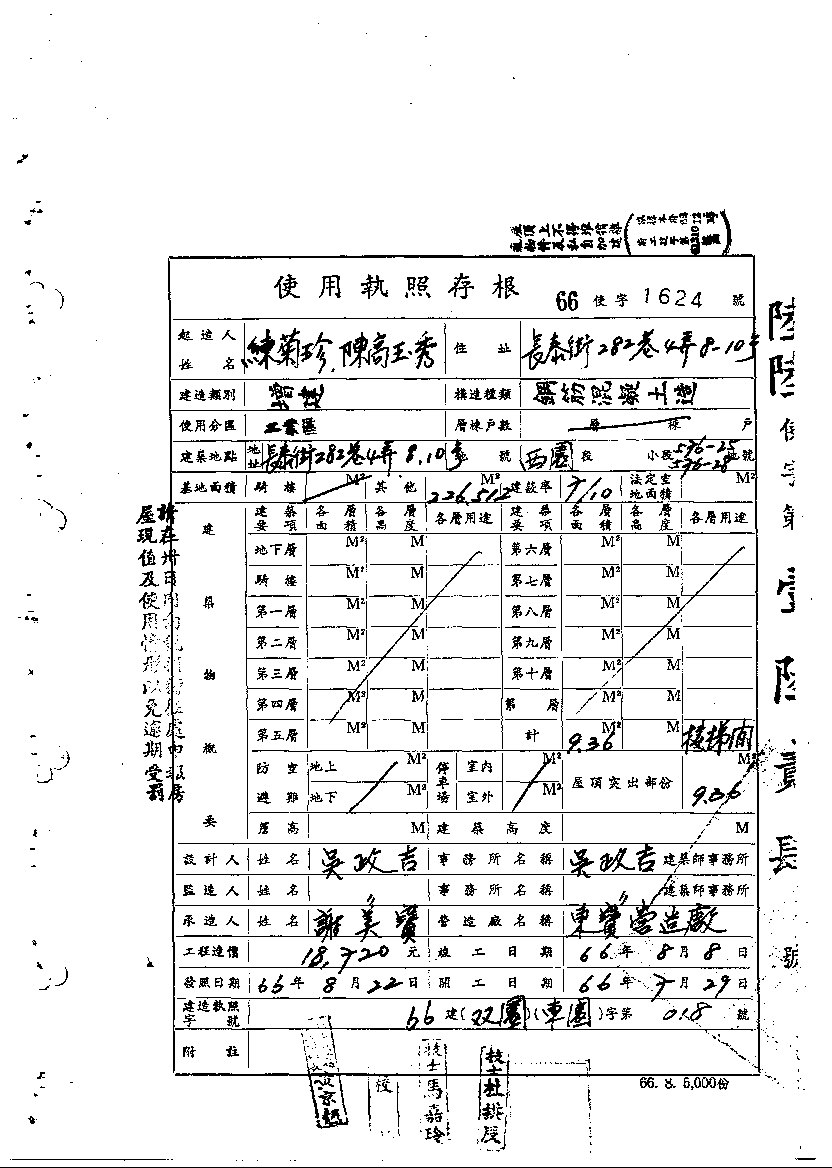 使用執照存根 66 使字 1624 號
起造人姓名 練菊珍、陳高玉秀 住址 長泰街282巷4弄8-10号
建造類別 增建 構造種類 鋼筋混凝土造
使用分區 工業區 層棟戶數 層 棟 戶
建築地點 地址 長泰街282巷4弄8.10号 地號 西園 段 小段 596-25 596-28 地號
基地面積 騎樓 M² 其他 226.512 M² 建蔽率 7/10 法定空地面積 M²
建築物概要 建築要項 各層面積 各層高度 各層用途 建築要項 各層面積 各層高度 各層用途
地下層 M² M 第六層 M² M
騎樓 M² M 第七層 M² M
第一層 M² M 第八層 M² M
第二層 M² M 第九層 M² M
第三層 M² M 第十層 M² M
第四層 M² M 第 層 M² M
第五層 M² M 計 9.36 M² M 樓梯間
防空避難 地上 M² 停車場 室內 M² 屋頂突出部份 9.36 M²
地下 M² 室外 M²
層高 M 建築高度 M
設計人 姓名 吳政吉 事務所名稱 吳政吉 建築師事務所
監造人 姓名 〃 事務所名稱 〃 建築師事務所
承造人 姓名 謝美寶 營造廠名稱 東寶營造廠
工程造價 18,720 元 竣工日期 66年8月8日
發照日期 66年8月22日 開工日期 66年7月29日
建造執照字號 66建(双園)(東園)字第 018 號
附註
技士馬嘉玲
66.8.5,000份
屋現值及使用情形以免逾期受罰
使字第
號